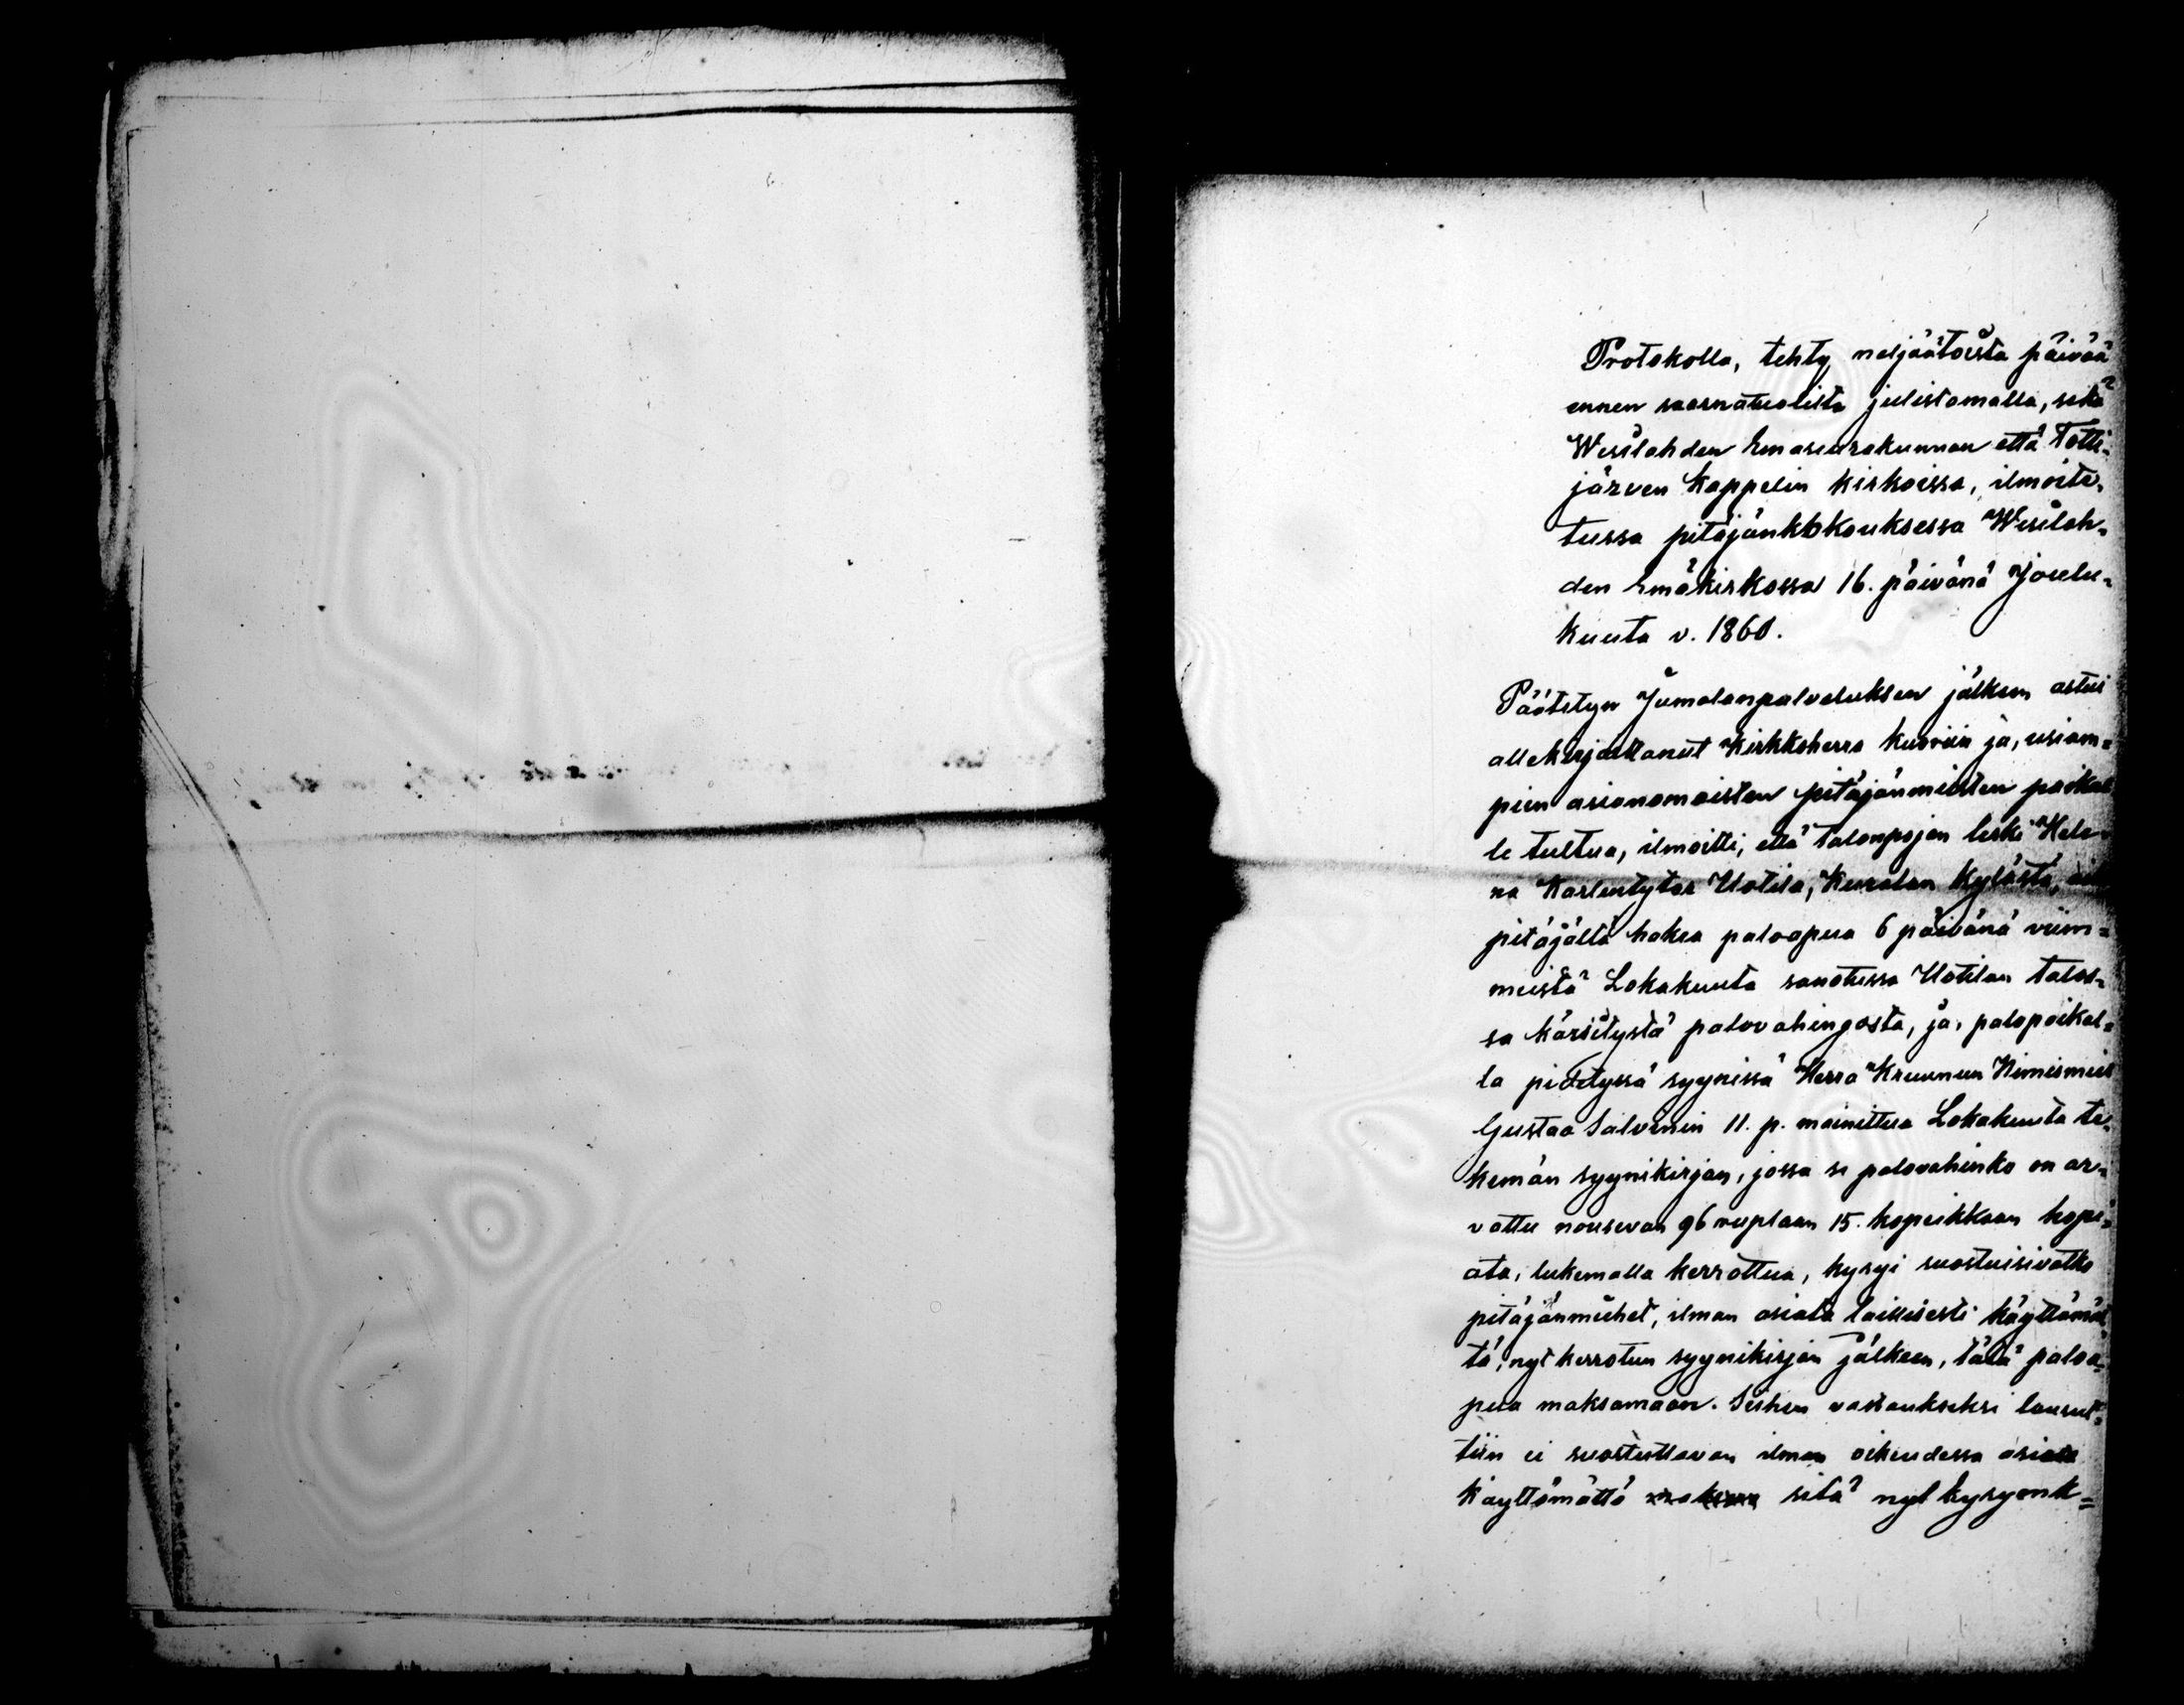 Protokolla, tehty neljäätoista päivää
ennen saarnatuolista julistamalla, sekä
Wesilahden Emäseurakunnan että Totti-
järven Kappelin kirkoissa, ilmoite-
tussa pitäjänkokouksessa Wesilah-
den Emäkirkossa 16. päivänä Joulu-
kuuta v. 1860.
Päätetyn Jumalanpalveluksen jälkeen astui
allekirjoittanut Kirkkoherra kuoriin ja, usiam-
pien asianomaisten pitäjänmiesten paikal
le tultua, ilmoitti, että talonpojan leski Hele-
na Kaarlentytär Uotila, Kuralan Kylästä,
pitäjältä hakea paloapua 6 päivänä viim-
meistä Lokakuuta sanotussa Uotilan talos-
sa kärsitystä palovahingosta, ja, palopaikal-
la pidetyssä syynissä Herra Kruunun Nimismies
Gustaa Salvenin 11. p. mainittua Lokakuuta te-
kemän syynikirjan, jossa se palovahinko on ar-
vattu nousevan 96 ruplaan 15. kopeikkaan hope-
ata, lukemalla kerrottua, kysyi suostuisivatko
pitäjänmiehet, ilman asiata laillisesti käyttämät-
tä, nyt kerrotun syynikirjan jälkeen, tätä paloa-
pua maksamaan. Siihen vastaukseksi lausut-
tiin ei suostuttavan ilman oikeudessa asiata
käyttämättä sitä nyt kysyenk-